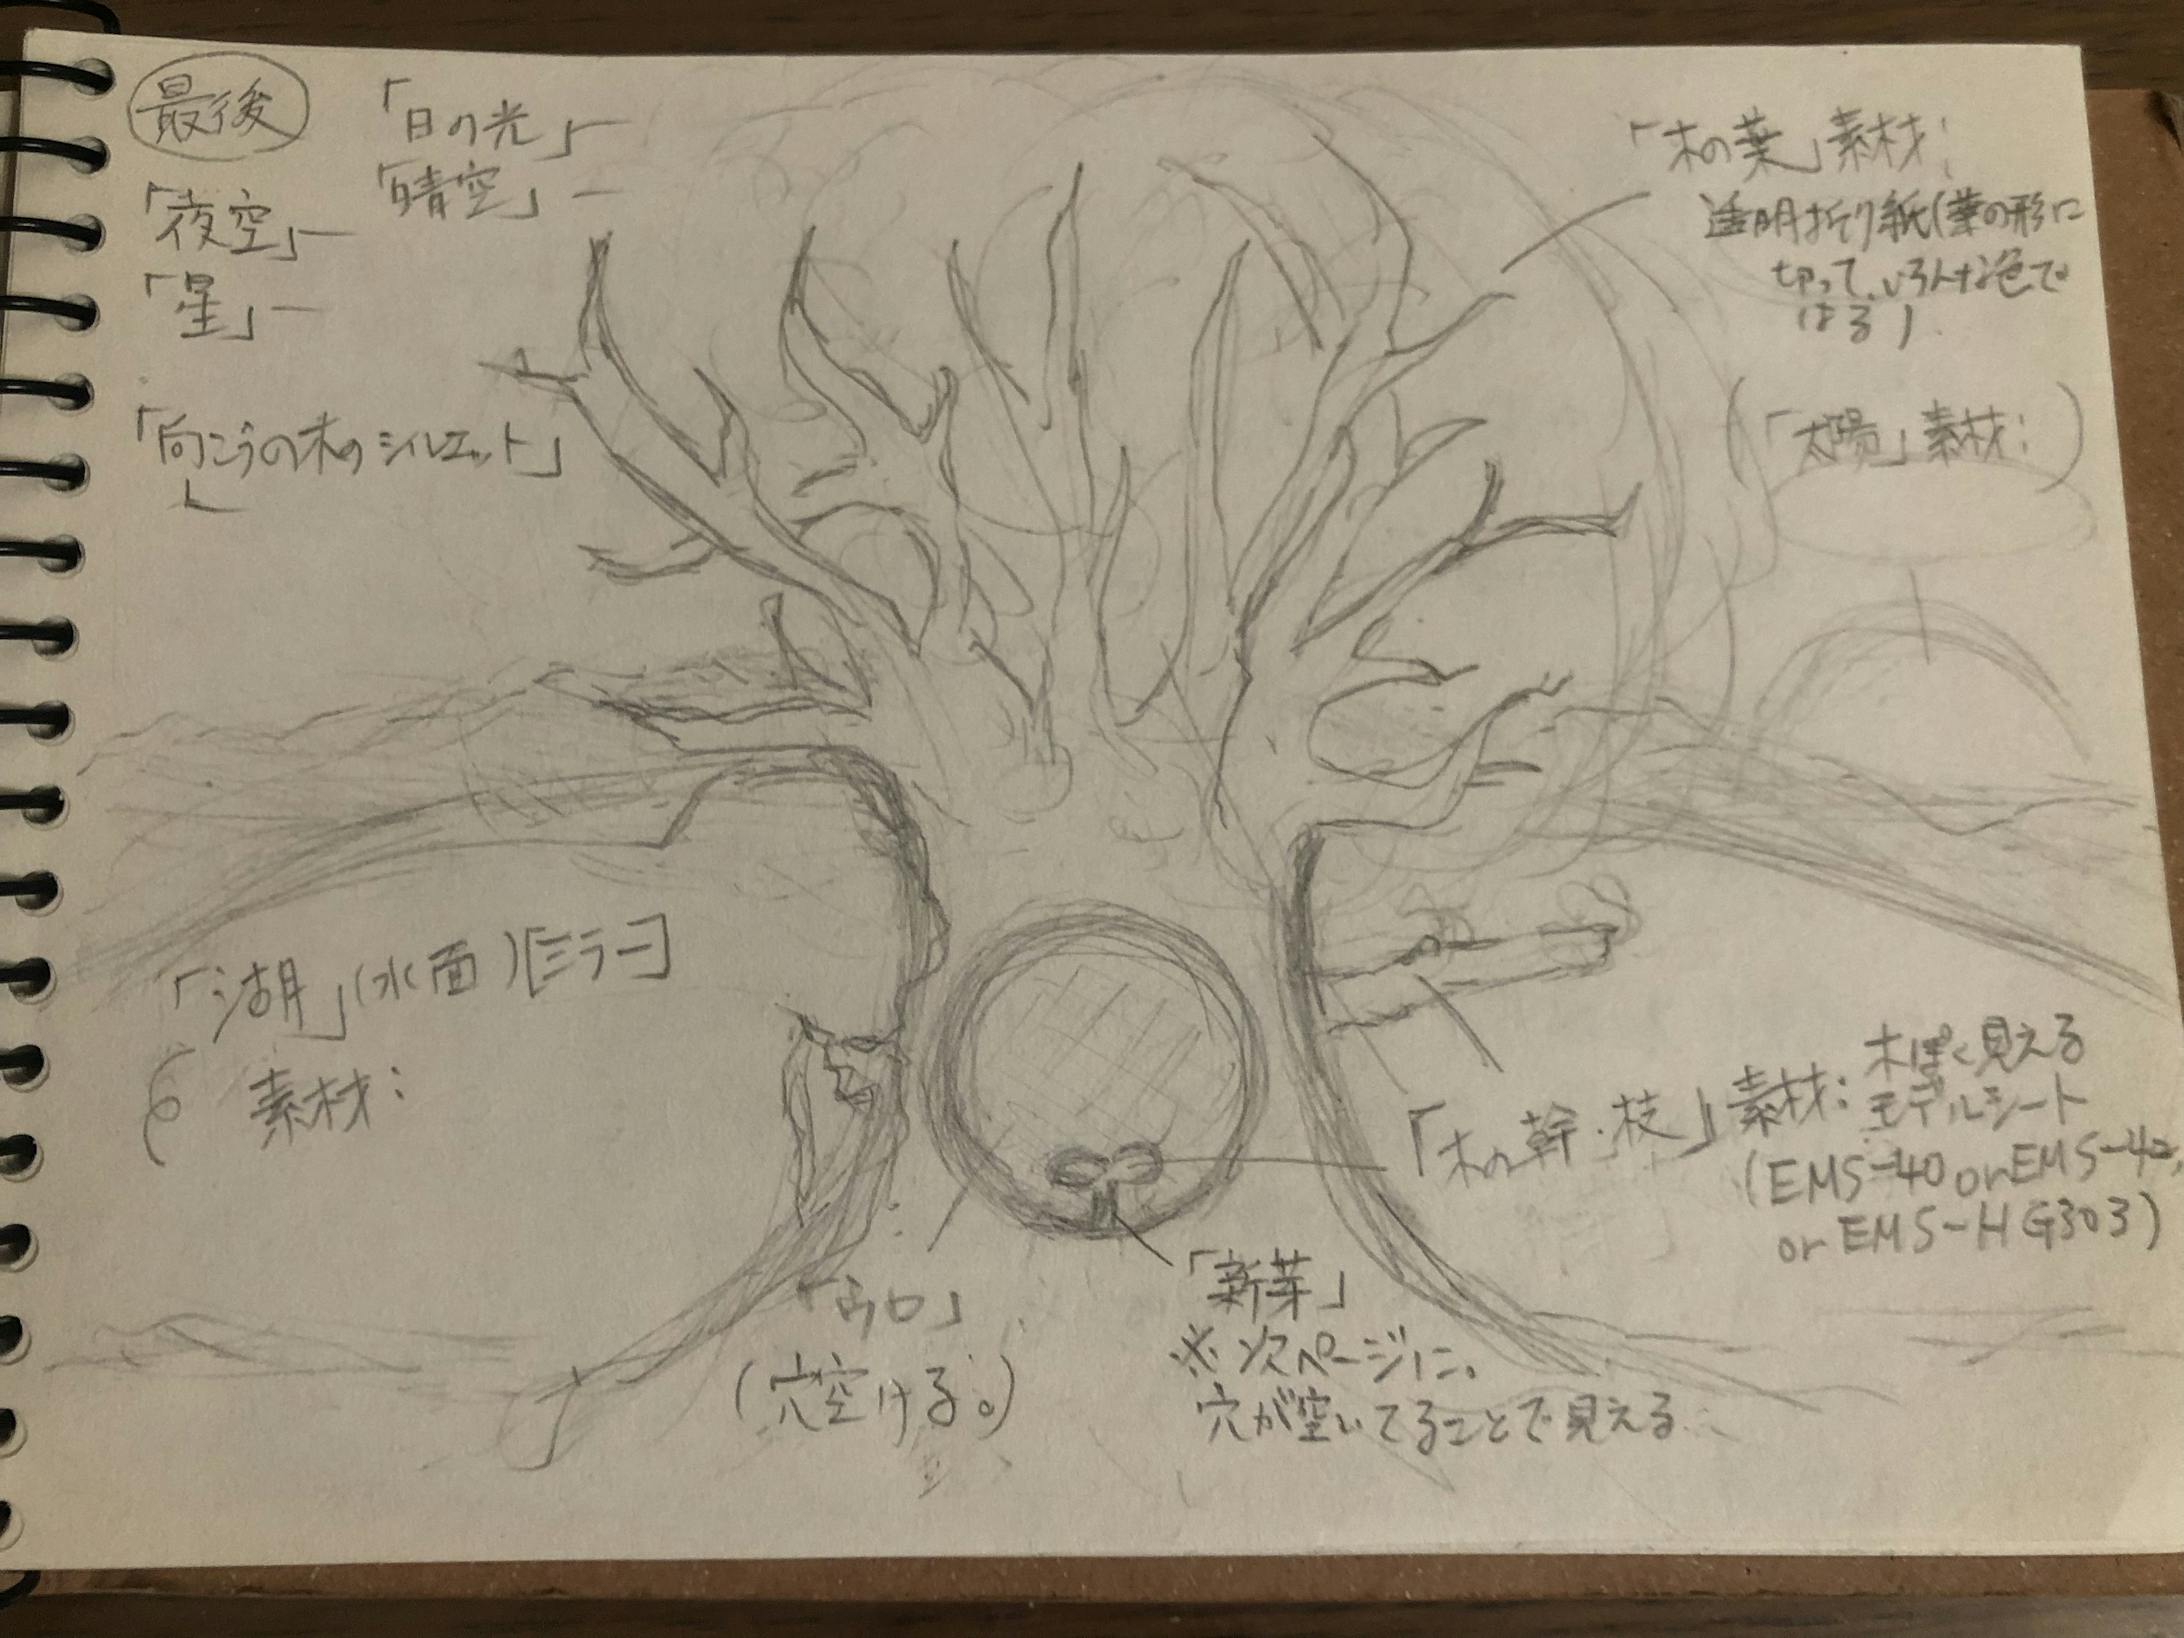 最後
「日の光」
「晴空」
「夜空」
「星」
「向こうの木のシルエット」
「木の葉」素材:
透明折り紙(葉の形に
切って、いろんな色で
はる)
(「太陽」素材:)
「湖」(水面)[ミラー]
素材:
「木の幹・枝」素材:木ぽく見える
モデルシート
(EMS-40 or EMS-42,
or EMS-HG303)
「ウロ」
(穴空ける。)
「新芽」
※次ページに。
穴が空いてることで見える